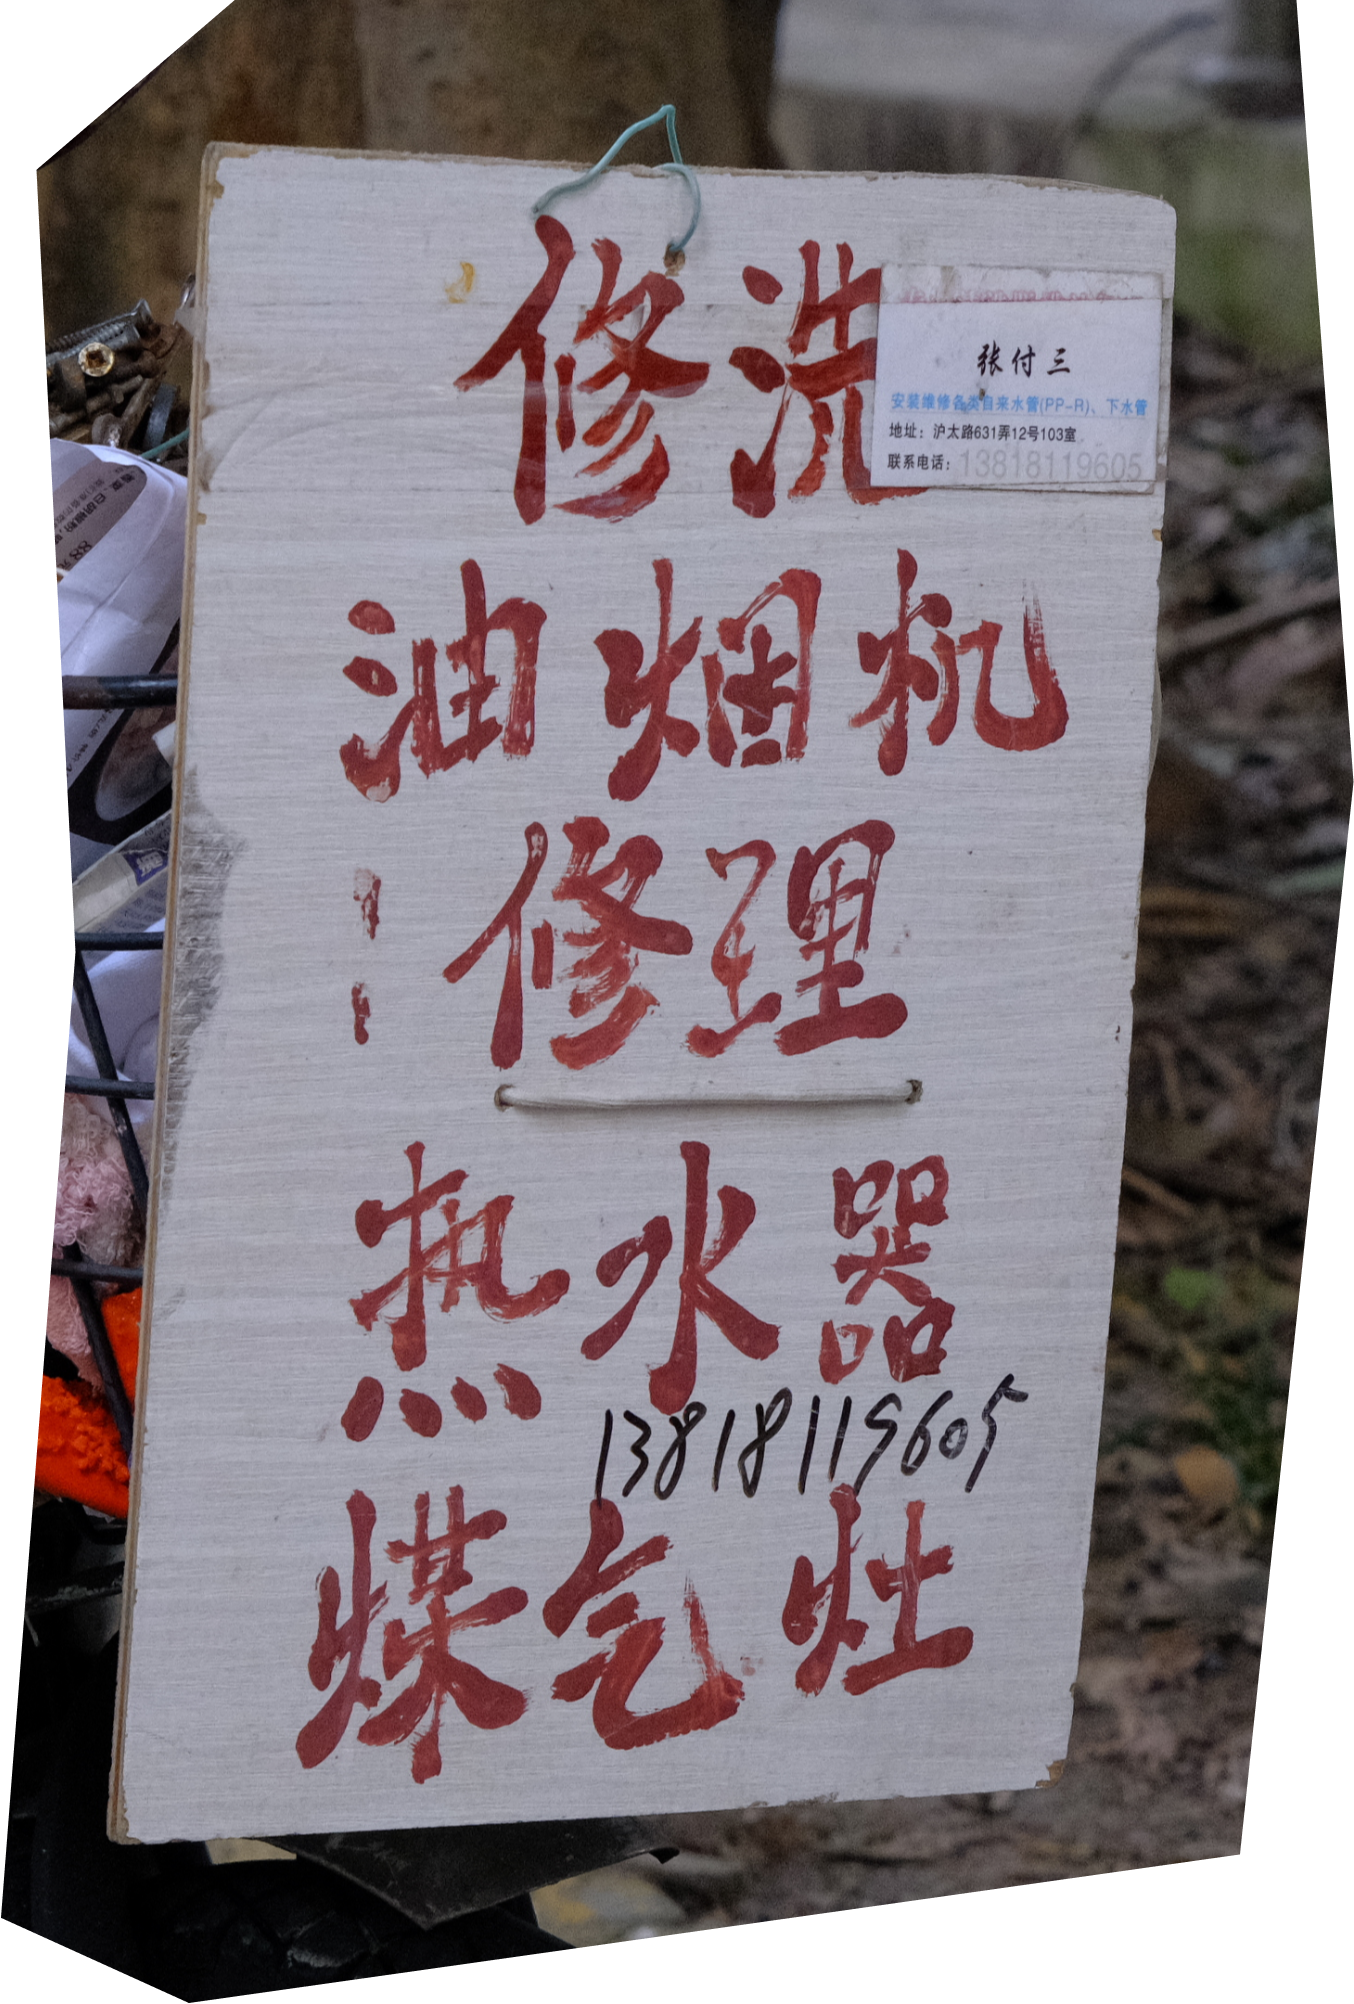 修洗
张付三
安装维修各类自来水管(PP-R)、下水管
地址：沪太路631弄12号103室
联系电话：13818119605
油烟机
修理
热水器
13818119605
煤气灶